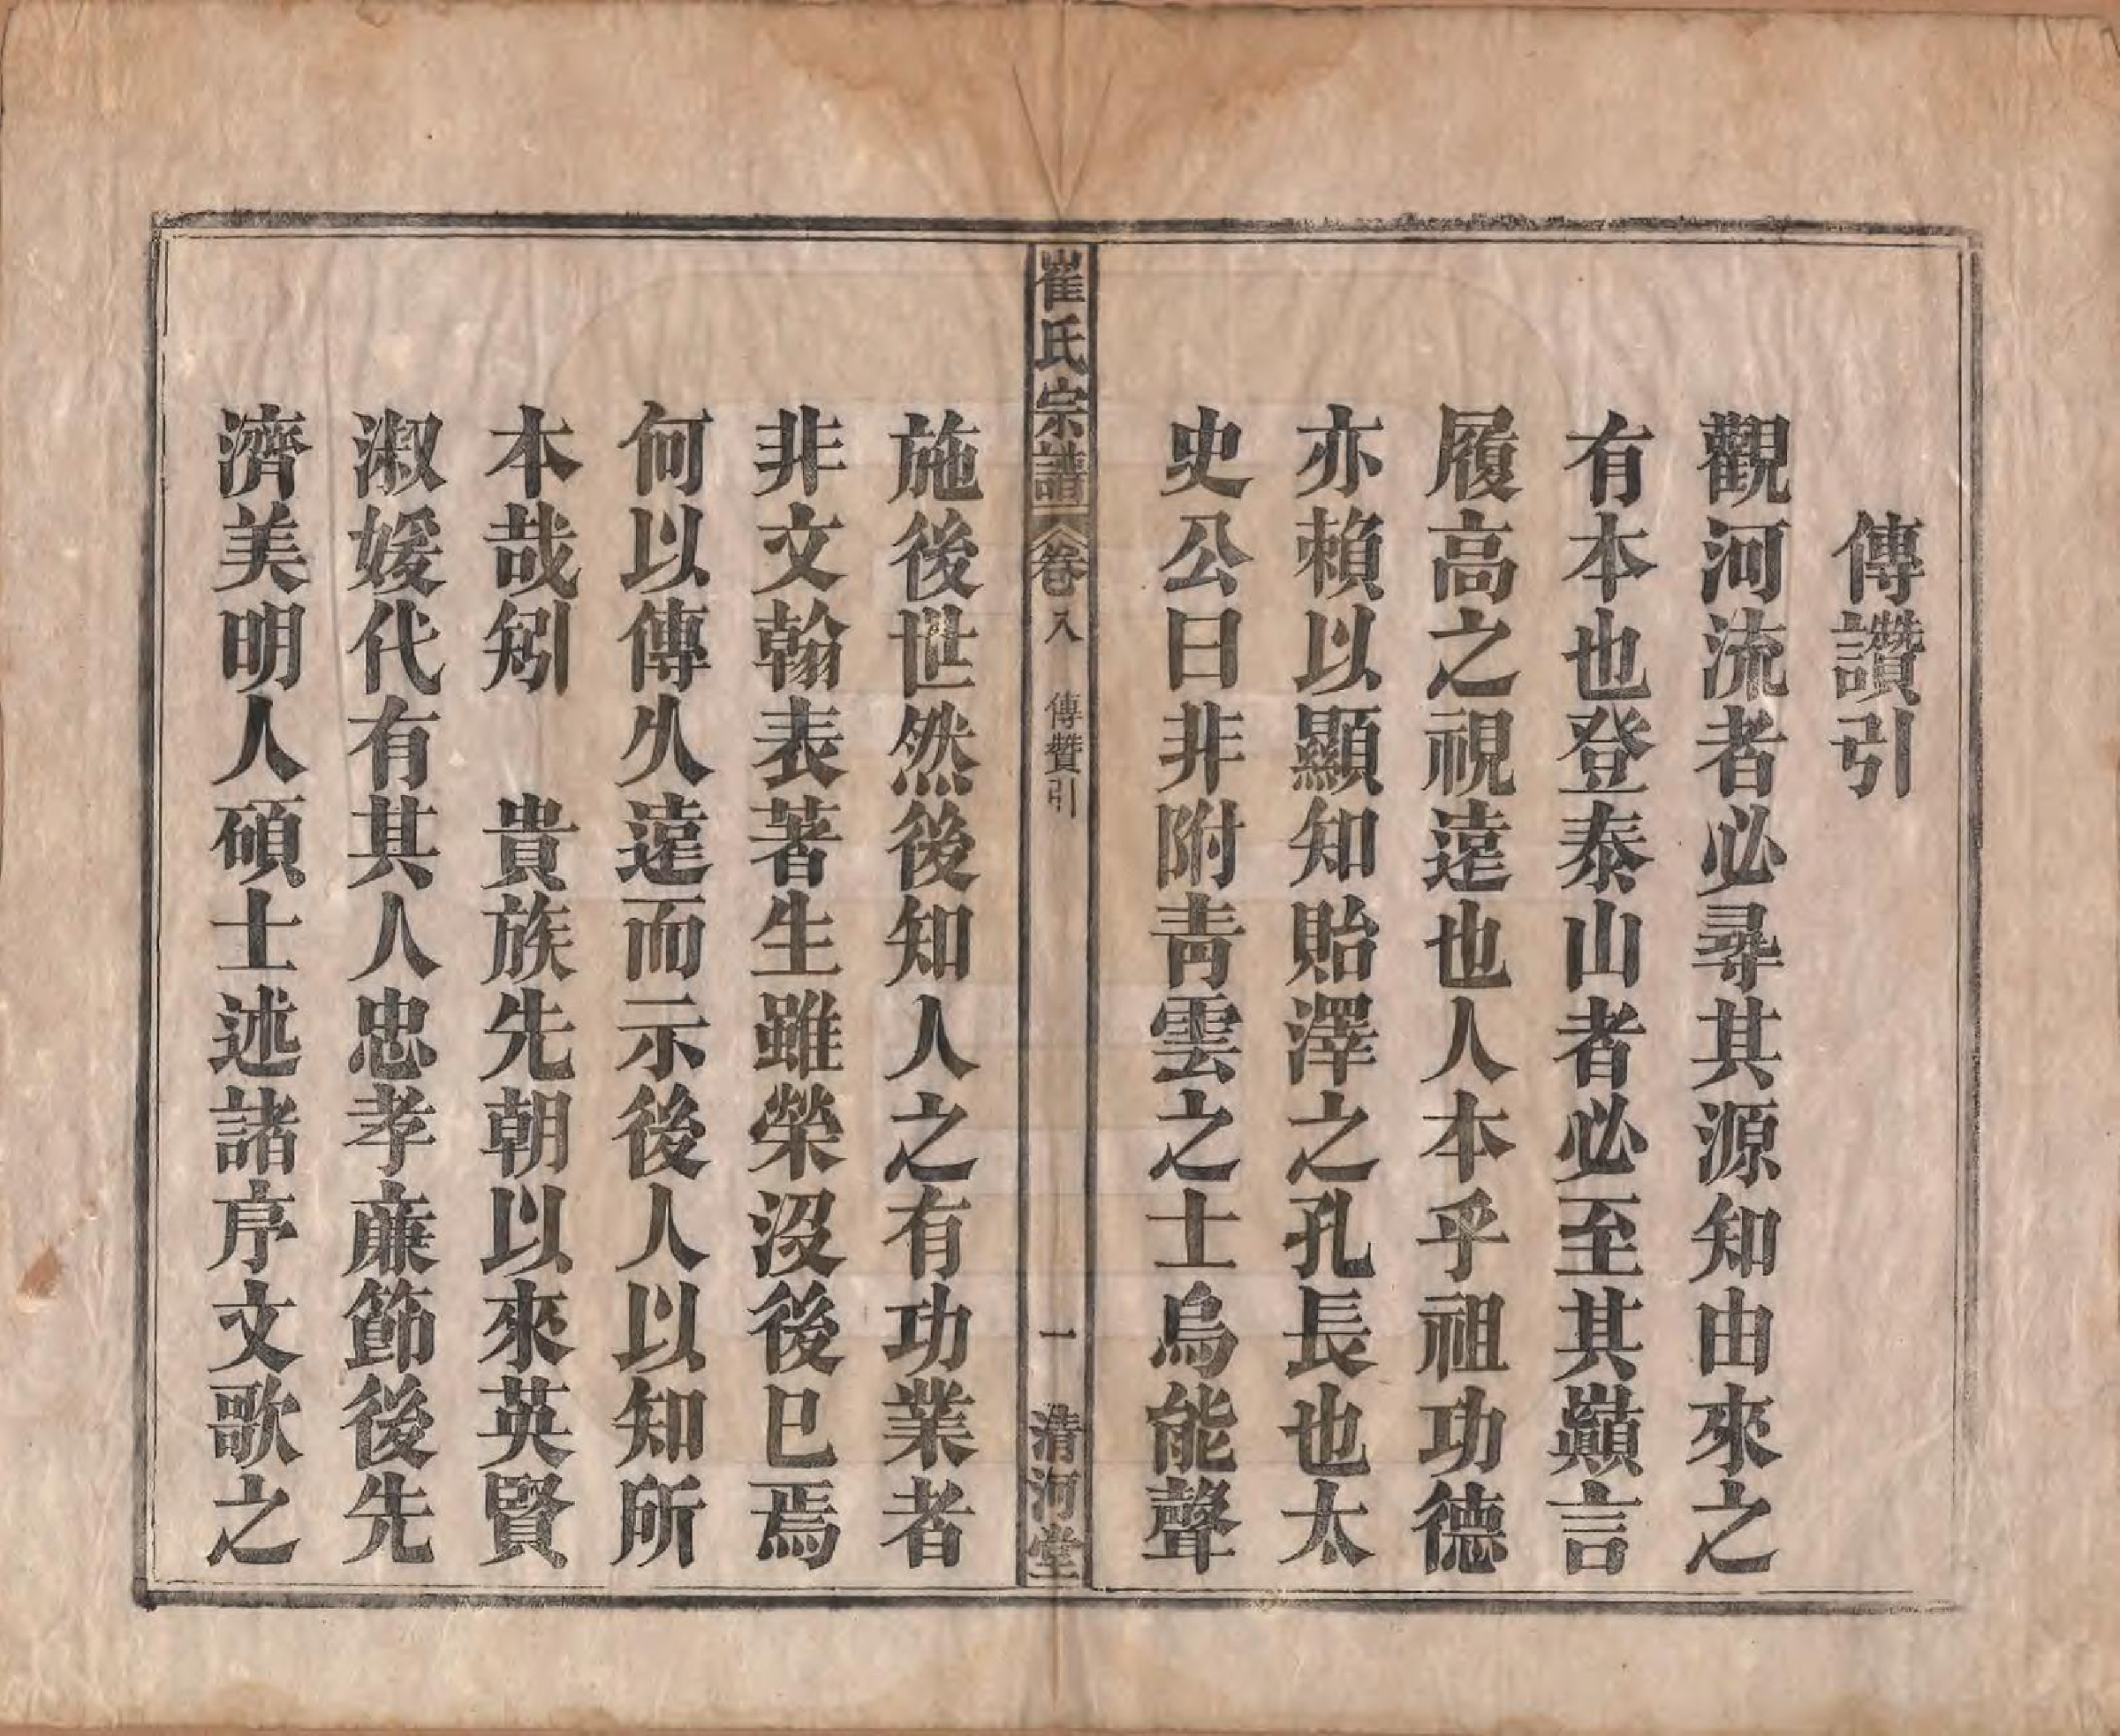 傳讚引
觀河流者必尋其源知由來之
有本也登泰山者必至其巔言
履高之視遠也人本乎祖功德
亦賴以顯知貽澤之孔長也太
史公曰非附青雲之士烏能聲
崔氏宗譜
卷八
傳贊引
一
清河堂
施後世然後知人之有功業者
非文翰表著生雖榮沒後已焉
何以傳久遠而示後人以知所
本哉矧 貴族先朝以來英賢
淑媛代有其人忠孝廉節後先
濟美明人碩士述諸序文歌之